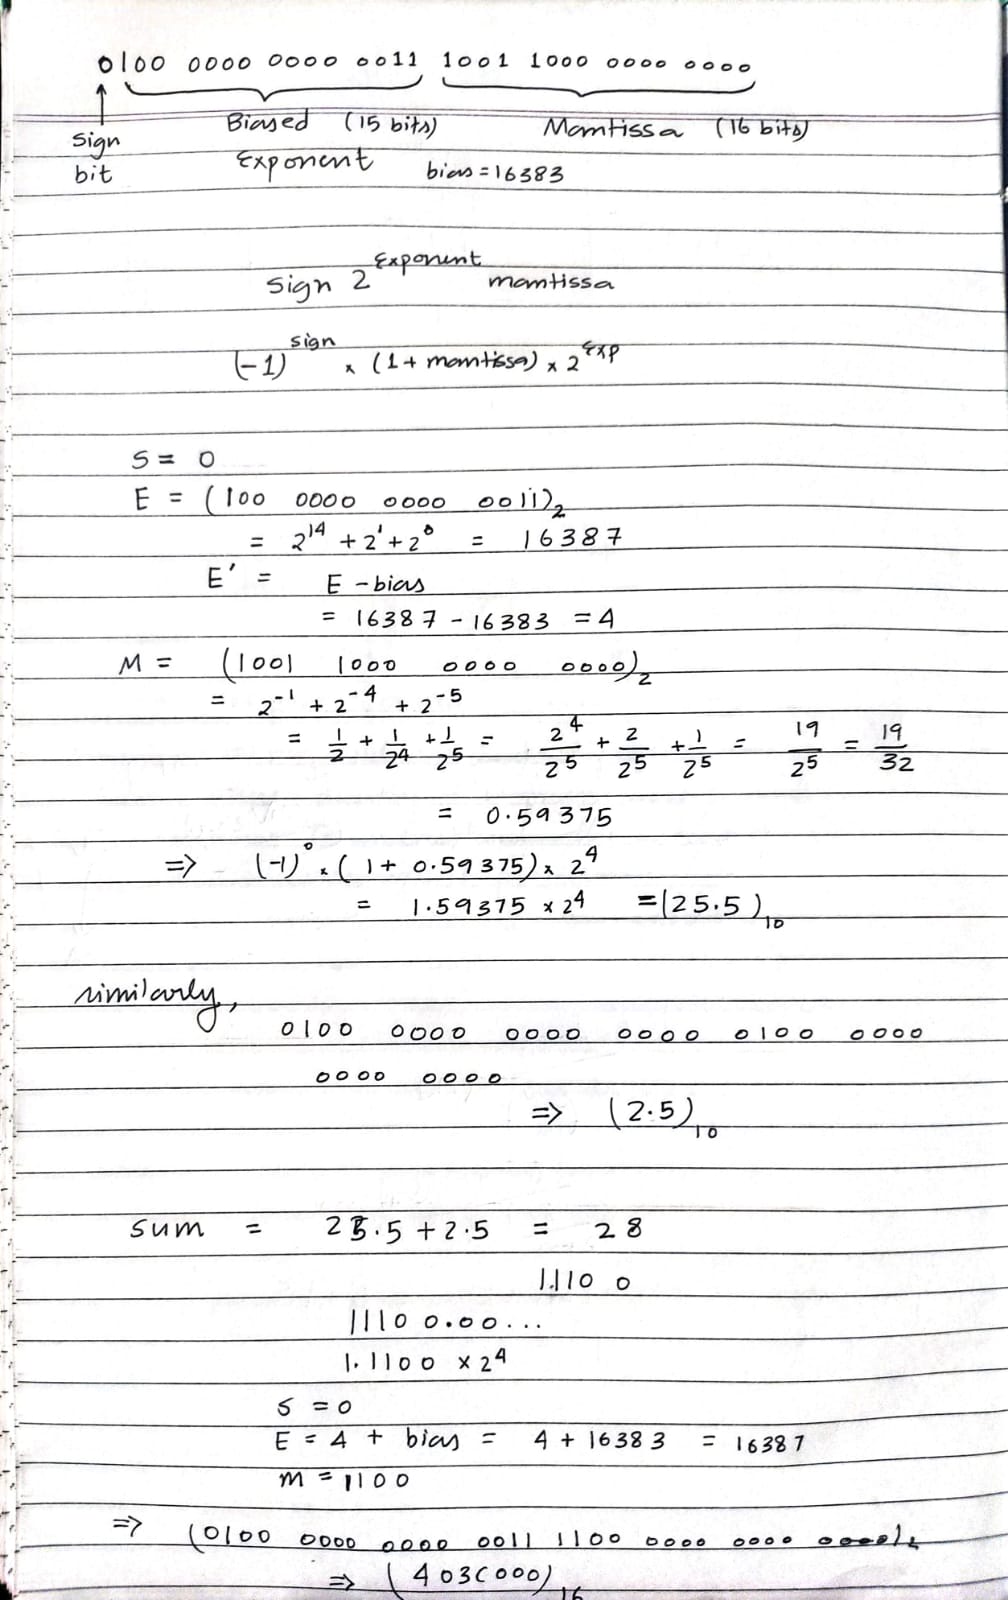 0100 0000 0000 0011 1001 1000 0000 0000
Sign bit
Biased Exponent (15 bits)
bias = 16383
Mantissa (16 bits)
Sign 2^Exponent mantissa
(-1)^sign x (1 + mantissa) x 2^Exp
S = 0
E = (100 0000 0000 0011)₂
= 2^14 + 2^1 + 2^0 = 16387
E' = E - bias
= 16387 - 16383 = 4
M = (1001 1000 0000 0000)₂
= 2^-1 + 2^-4 + 2^-5
= 1/2 + 1/2^4 + 1/2^5 = 2^4/2^5 + 2/2^5 + 1/2^5 = 19/2^5 = 19/32
= 0.59375
=> (-1)^0 x (1 + 0.59375) x 2^4
= 1.59375 x 2^4 = (25.5)₁₀
similarly,
0100 0000 0000 0000 0100 0000
0000 0000
=> (2.5)₁₀
sum = 25.5 + 2.5 = 28
1.110 0
11100.00...
1.1100 x 2^4
S = 0
E = 4 + bias = 4 + 16383 = 16387
m = 1100
=> (0100 0000 0000 0011 1100 0000 0000 0000)₂
=> (403C000)₁₆